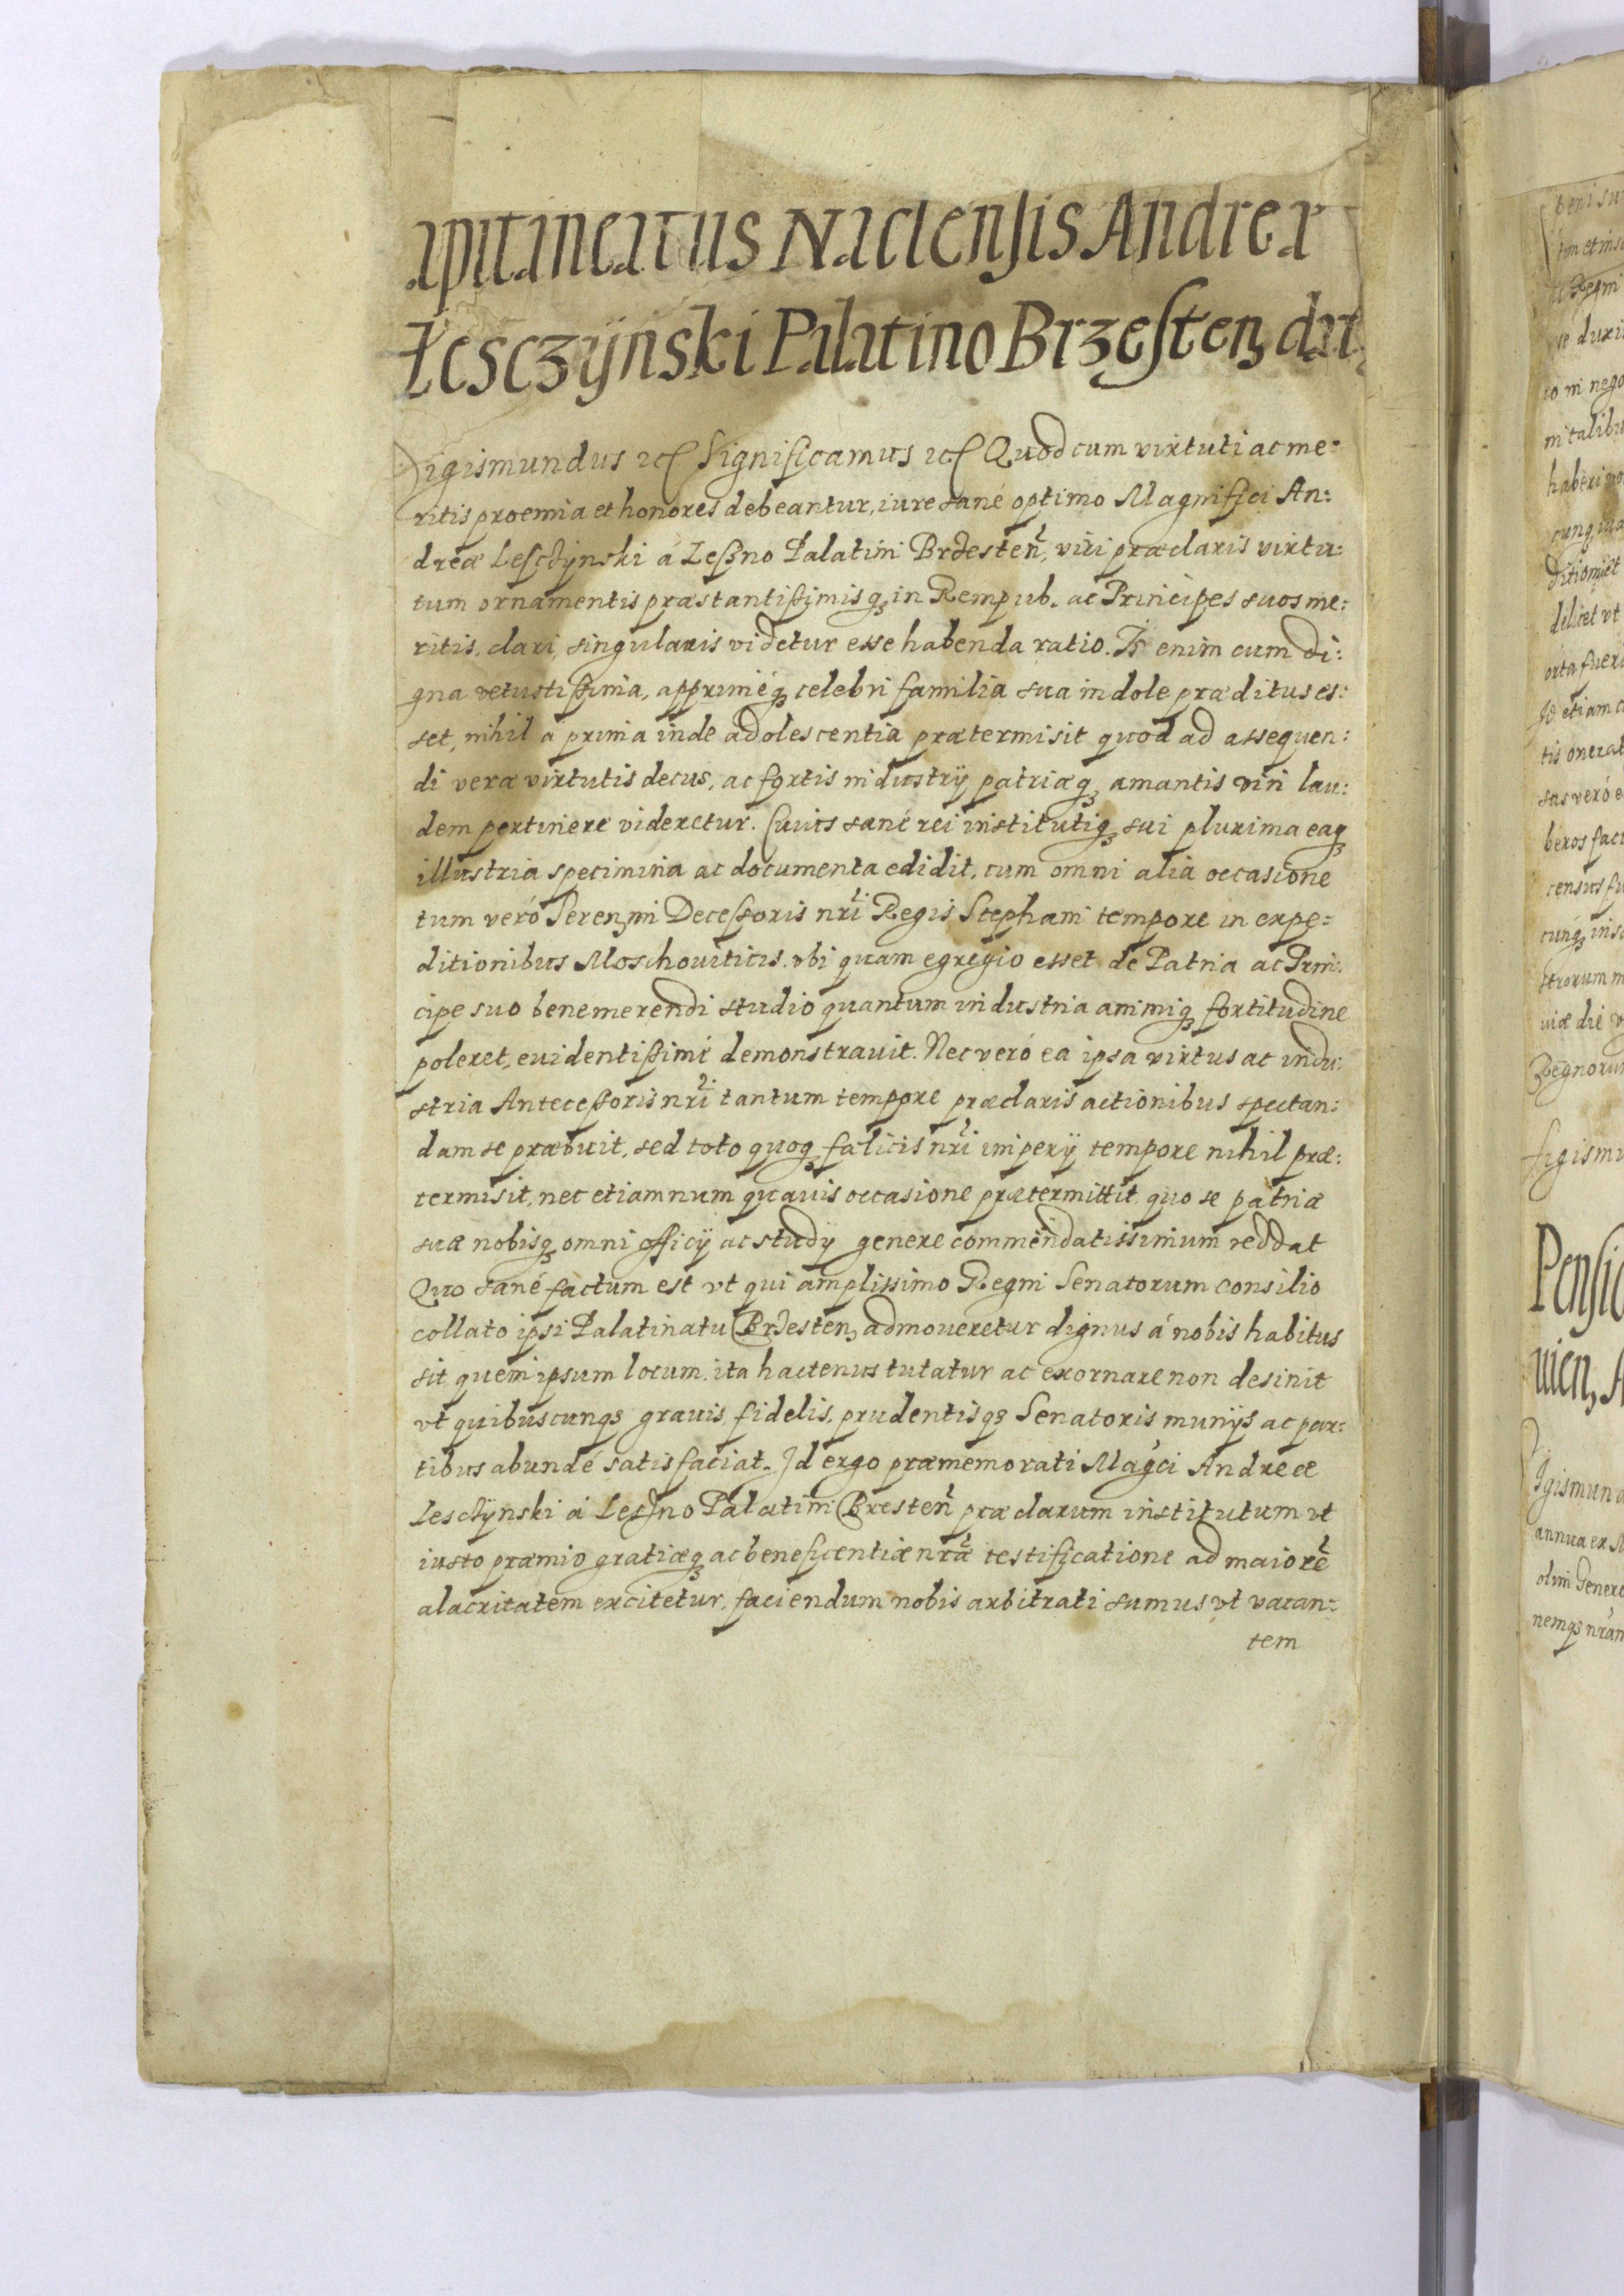 apitaneatus Naclensis Andreæ
Łesczÿnski Palatino Brzesten, dat,
Sigismundus etc Significamus etc Quod cum virtuti ac me:
ritis proemia et honores debeantur, iure sané optimo Magnifici An:
dreæ Lesczÿnski á Leßno Palatini Brzesteñ, viri præclaris virtu:
tum ornamentis præstantißimisq, in Rempub. ac Principes suos me:
ritis, clari, singularis videtur esse habenda ratio. Is enim cum di:
gna vetustißima, appriméq, celebri familia sua indole præditus es:
set, nihil a prima inde adolescentia prætermisit quod ad assequen:
di veræ virtutis decus, ac fortis industrÿ patriæq, amantis viri lau:
dem pertinere videretur. Cuius sané rei institutiq, sui plurima eaq,
illustria specimina ac documenta edidit, cum omni alia occasione
tum veró Seren,mi Decessoris nri Regis Stephani tempore in expe:
ditionibus Moschouiticis. vbi quam egregio esset de Patria ac Prin:
cipe suo benemerendi studio quantum industria animiq, fortitudine
poleret, euidentißimé demonstrauit. Nec veró ea ipsa virtus ac indu:
stria Antecessoris nri tantum tempore præclaris actionibus spectan:
dam se præbuit, sed toto quoq, fælicis nri imperÿ tempore nihil præ:
termisit, nec etiamnum quauis occasione prætermittit quo se patriæ
suæ nobisq, omni officÿ ac studÿ genere commendatissimum reddat
Quo sané factum est vt qui amplissimo Regni Senatorum consilio
collato ipsi Palatinatu Brzesten, admoueretur dignus á nobis habitus
sit quem ipsum locum ita hactenus tutatur ac exornare non desinit
vt quibuscunqs grauis, fidelis, prudentisqs Senatoris munÿs ac par:
tibus abundé satisfaciat. Id ergo præmemorati Magci Andreæ
Lesczÿnski á Leszno Palatini Bresteñ præclarum institutum vt
iusto præmio gratiæq, ac beneficentiæ nræ testificatione ad maiorẽ
alacritatem excitetur, faciendum nobis arbitrati sumus vt vacan:
tem
Regnorum
Pensio
uien,
annua ex
olim Genero